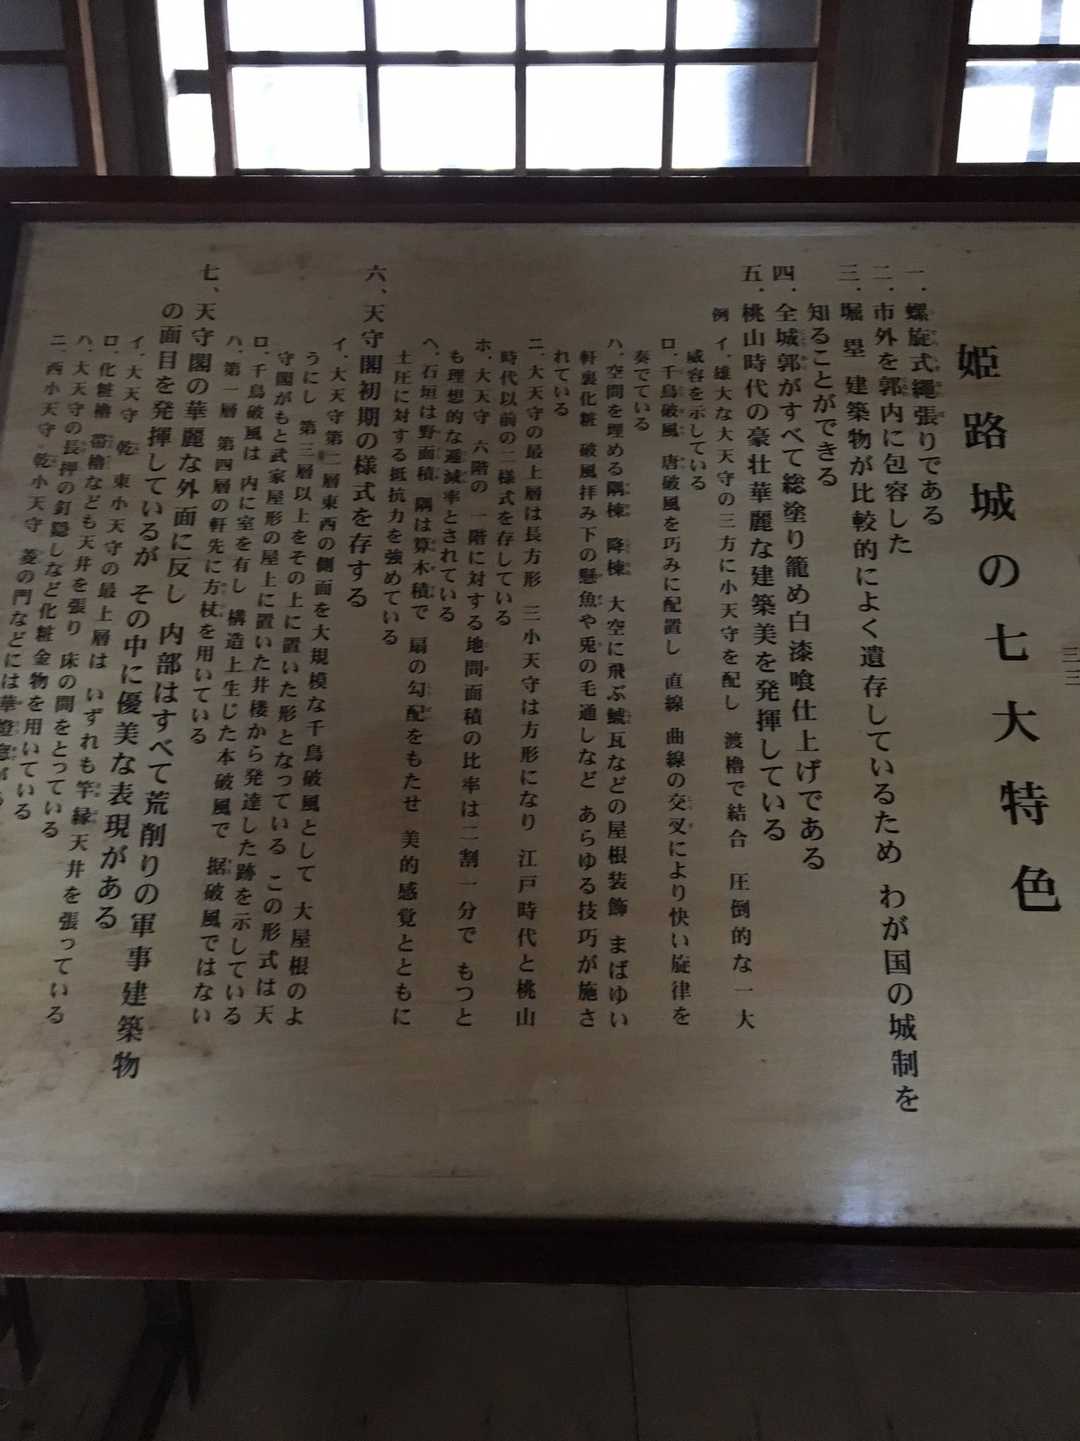 三三
姫路城の七大特色
一．螺旋式縄張りである
二．市外を郭内に包容した
三．堀 塁 建築物が比較的によく遺存しているため わが国の城制を
知ることができる
四．全城郭がすべて総塗り籠め白漆喰仕上げである
五．桃山時代の豪壮華麗な建築美を発揮している
例 イ、雄大な大天守の三方に小天守を配し 渡櫓で結合 圧倒的な一大
威容を示している
ロ．千鳥破風 唐破風を巧みに配置し 直線 曲線の交叉により快い旋律を
奏でている
ハ、空間を埋める隅棟 降棟 大空に飛ぶ鯱瓦などの屋根装飾 まばゆい
軒裏化粧 破風拝み下の懸魚や兎の毛通しなど あらゆる技巧が施さ
れている
ニ．大天守の最上層は長方形 三小天守は方形になり 江戸時代と桃山
時代以前の二様式を存している
ホ．大天守 六階の 一階に対する地間面積の比率は二割一分で もつと
も理想的な逓減率とされている
ヘ、石垣は野面積 隅は算木積で 扇の勾配をもたせ 美的感覚とともに
土圧に対する抵抗力を強めている
六、天守閣初期の様式を存する
イ．大天守第二層東西の側面を大規模な千鳥破風として 大屋根のよ
うにし 第三層以上をその上に置いた形となっている この形式は天
守閣がもと武家屋形の屋上に置いた井楼から発達した跡を示している
ロ．千鳥破風は 内に室を有し 構造上生じた本破風で 据破風ではない
ハ．第一層 第四層の軒先に方杖を用いている
七、天守閣の華麗な外面に反し 内部はすべて荒削りの軍事建築物
の面目を発揮しているが その中に優美な表現がある
イ．大天守 乾 東小天守の最上層は いずれも竿縁天井を張っている
ロ．化粧櫓 帯櫓なども天井を張り 床の間をとっている
ハ．大天守の長押の釘隠しなど化粧金物を用いている
ニ．西小天守 乾小天守 菱の門などには華燈窓が